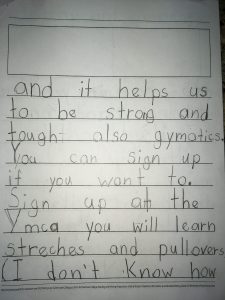 and it helps us
to be strong and
tough also gymatiss.
You can sign up
if you want to.
Sign up at the
Ymca you will learn
streches and pullovers
(I don't know how